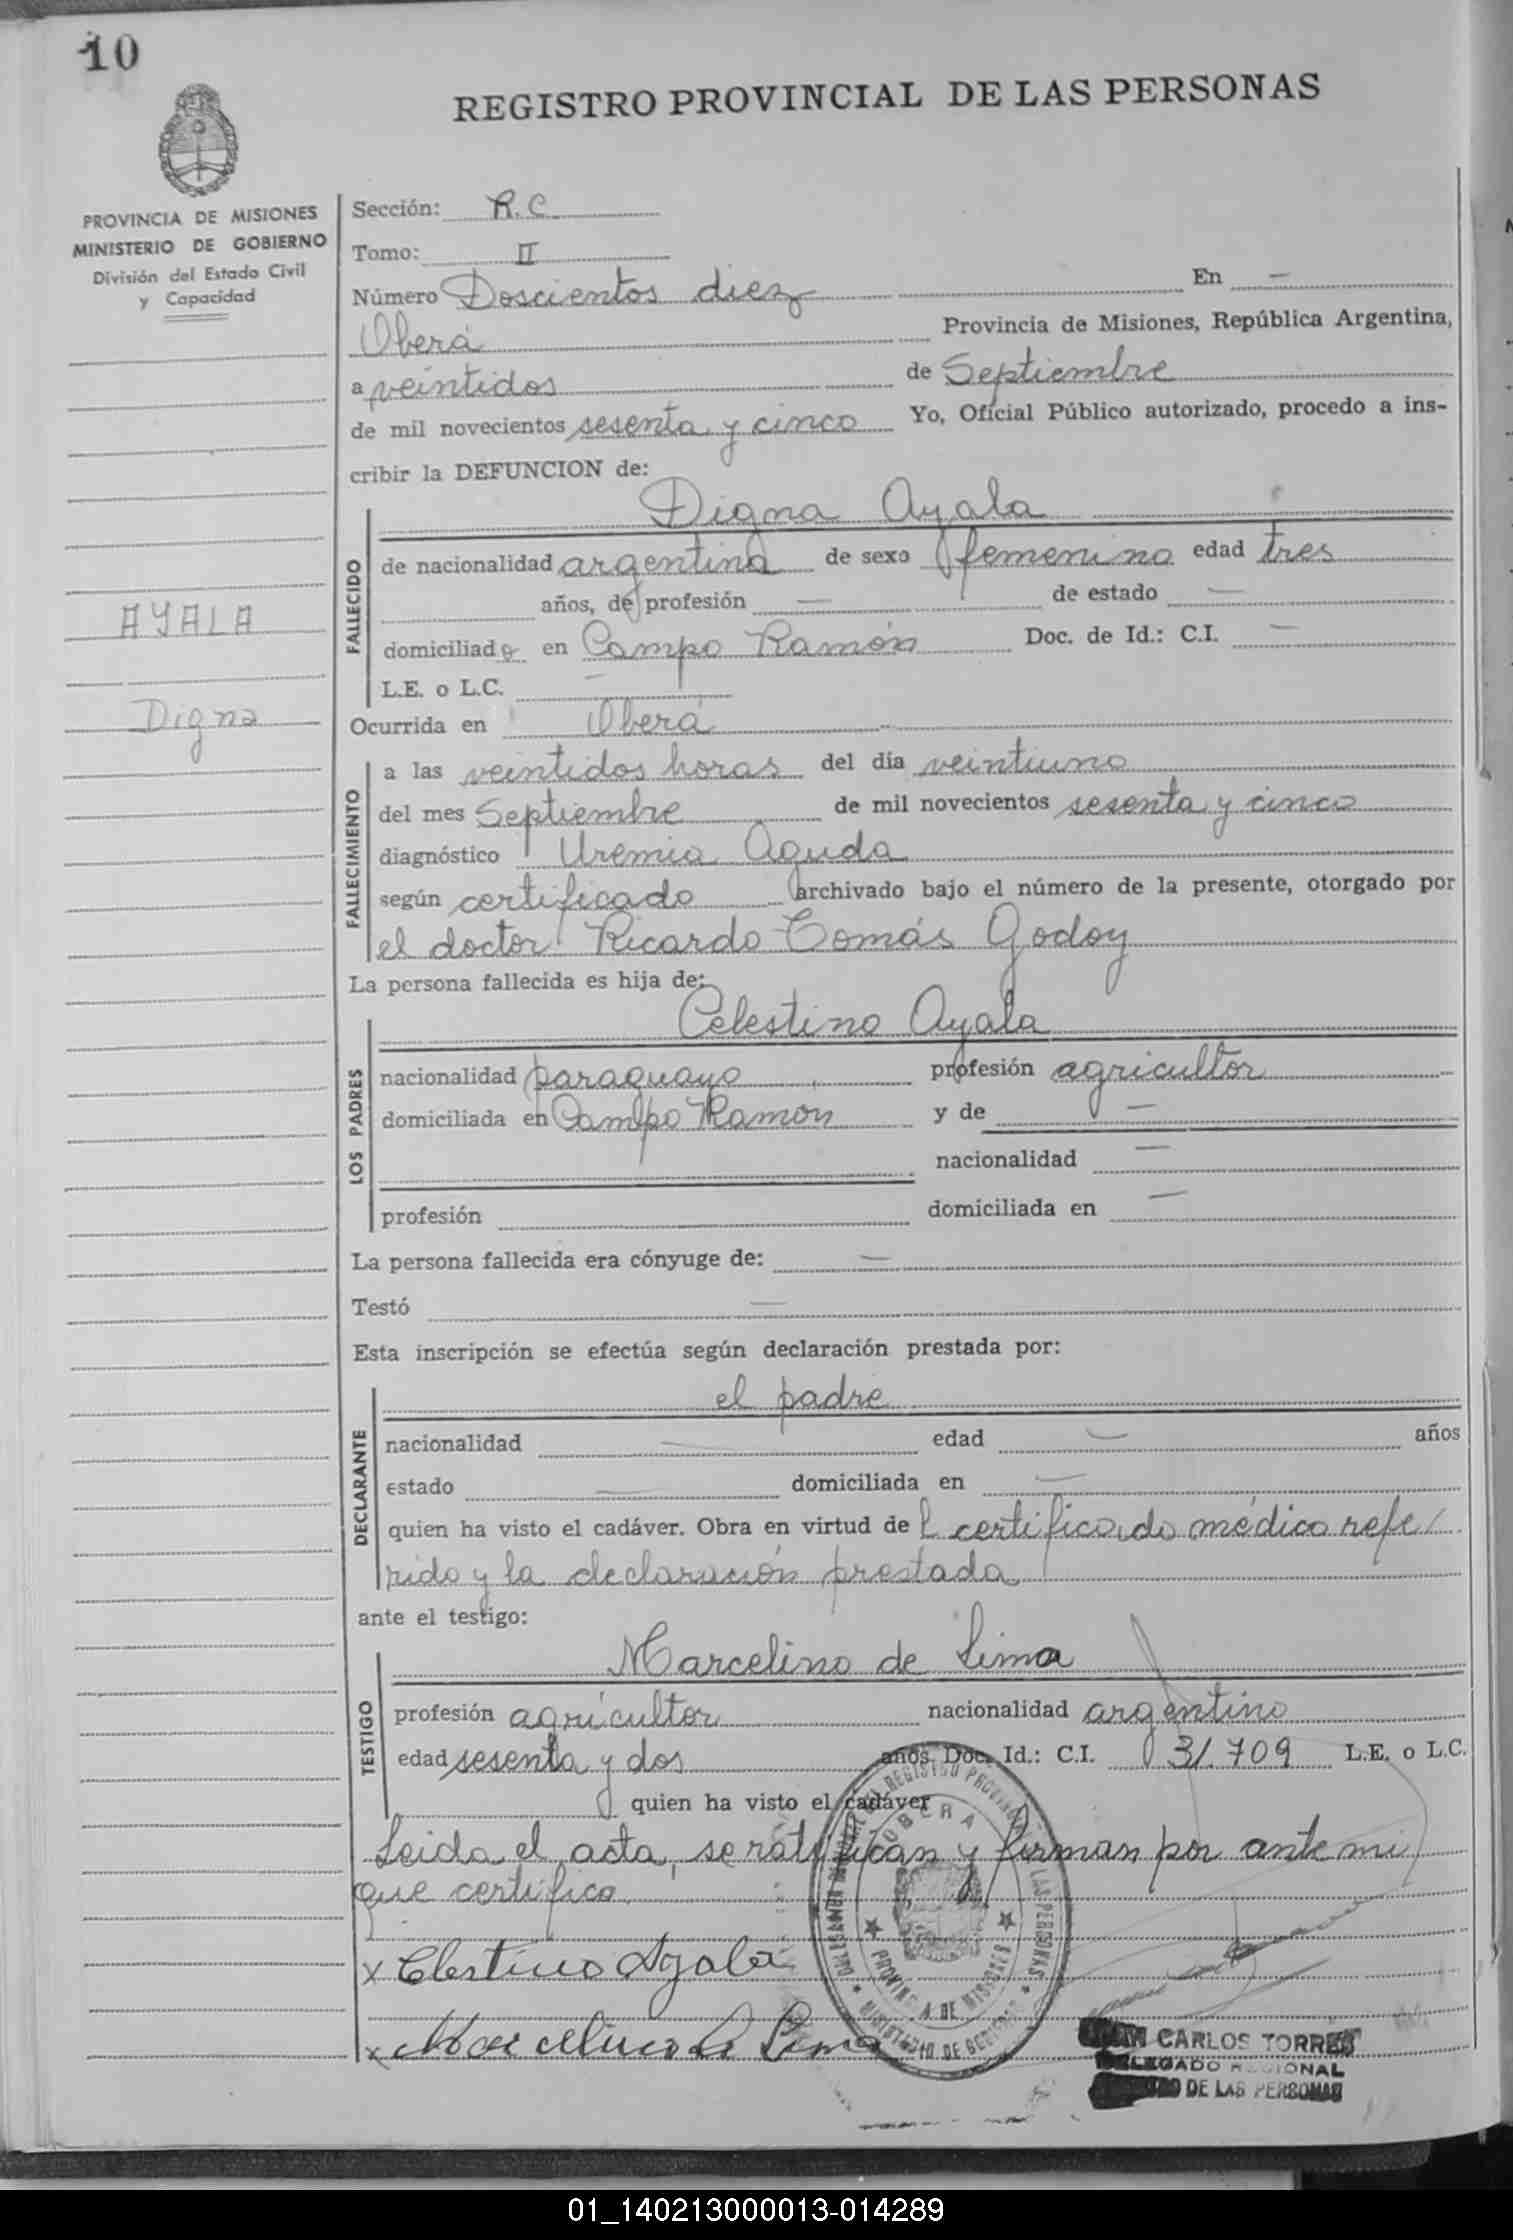 10
REGISTRO PROVINCIAL DE LAS PERSONAS
PROVINCIA DE MISIONES
MINISTERIO DE GOBIERNO
División del Estado Civil
y Capacidad
AYALA
Digna
Sección: R.C.
Tomo: II
Número Doscientos diez En —
Oberá Provincia de Misiones, República Argentina,
a veintidos de Septiembre
de mil novecientos sesenta y cinco Yo, Oficial Público autorizado, procedo a ins-
cribir la DEFUNCION de:
Digna Ayala
FALLECIDO
de nacionalidad argentina de sexo femenino edad tres
años, de profesión — de estado —
domiciliada en Campo Ramón Doc. de Id.: C.I. —
L.E. o L.C. —
Ocurrida en Oberá
FALLECIMIENTO
a las veintidos horas del día veintiuno
del mes Septiembre de mil novecientos sesenta y cinco
diagnóstico Uremia Aguda
según certificado archivado bajo el número de la presente, otorgado por
el doctor Ricardo Tomás Godoy
La persona fallecida es hija de:
Celestino Ayala
LOS PADRES
nacionalidad paraguayo profesión agricultor
domiciliada en Campo Ramon y de —
nacionalidad —
profesión domiciliada en —
La persona fallecida era cónyuge de: —
Testó —
Esta inscripción se efectúa según declaración prestada por:
el padre
DECLARANTE
nacionalidad — edad — años
estado — domiciliada en —
quien ha visto el cadáver. Obra en virtud del certificado médico refe/
rido y la declaración prestada
ante el testigo:
Marcelino de Lima
TESTIGO
profesión agricultor nacionalidad argentino
edad sesenta y dos años Doc. Id.: C.I. 31.709 L.E. o L.C.
quien ha visto el cadáver
Leida el acta, se ratifican y firman por ante mi
que certifico
x Celestino Ayala
x Marcelino de Lima
OBERA
PROVINCIA DE MISIONES
MINISTERIO DE GOBIERNO
REGISTRO PROVINCIAL DE LAS PERSONAS
CARLOS TORRES
DELEGADO REGIONAL
DE LAS PERSONAS
01_140213000013-014289